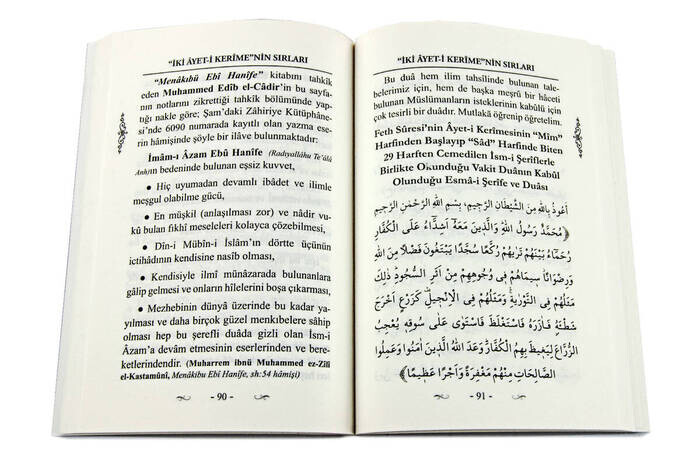 "İKİ ÂYET-İ KERÎME"NİN SIRLARI
"Menâkıbü Ebî Hanîfe" kitabını tahkîk
eden Muhammed Edîb el-Câdir'in bu sayfa-
nın notlarını zikrettiği tahkîk bölümünde yap-
tığı nakle göre; Şam'daki Zâhiriye Kütüphâne-
si'nde 6090 numarada kayıtlı olan yazma ese-
rin hâmişinde şöyle bir ilâve bulunmaktadır:
İmâm-ı Âzam Ebû Hanîfe (Radıyallâhu Te'âlâ
Anh)ın bedeninde bulunan eşsiz kuvvet,
● Hiç uyumadan devamlı ibâdet ve ilimle
meşgul olabilme gücü,
● En müşkil (anlaşılması zor) ve nâdir vu-
kû bulan fıkhî meseleleri kolayca çözebilmesi,
● Dîn-i Mübîn-i İslâm'ın dörtte üçünün
ictihâdının kendisine nasîb olması,
● Kendisiyle ilmî münâzarada bulunanlara
gâlip gelmesi ve onların hîlelerini boşa çıkarması,
● Mezhebinin dünyâ üzerinde bu kadar ya-
yılması ve daha birçok güzel menkıbelere sâhip
olması hep bu şerefli duâda gizli olan İsm-i
Âzam'a devâm etmesinin eserlerinden ve bere-
ketlerindendir. (Muharrem ibnü Muhammed ez-Zîlî
el-Kastamûnî, Menâkibu Ebî Hanîfe, sh:54 hâmişi)
- 90 -
"İKİ ÂYET-İ KERÎME"NİN SIRLARI
Bu duâ hem ilim tahsîlinde bulunan tale-
belerimiz için, hem de başka meşrû bir hâceti
bulunan Müslümanların isteklerinin kabûlü için
çok tesirli bir duâdır. Mutlakâ öğrenip öğretelim.
Feth Sûresi'nin Âyet-i Kerîmesinin "Mîm"
Harfinden Başlayıp "Sâd" Harfinde Biten
29 Harften Cemedilen İsm-i Şerîflerle
Birlikte Okunduğu Vakit Duânın Kabûl
Olunduğu Esmâ-i Şerîfe ve Duâsı
أَعُوذُ بِاللهِ مِنَ الشَّيْطَانِ الرَّجِيمِ، بِسْمِ اللهِ الرَّحْمٰنِ الرَّحِيمِ
﴿مُحَمَّدٌ رَسُولُ اللهِ وَالَّذِينَ مَعَهُ أَشِدَّاءُ عَلَى الْكُفَّارِ
رُحَمَاءُ بَيْنَهُمْ تَرٰيهُمْ رُكَّعًا سُجَّدًا يَبْتَغُونَ فَضْلًا مِنَ اللهِ
وَرِضْوَانًا سِيمَاهُمْ فِي وُجُوهِهِمْ مِنْ أَثَرِ السُّجُودِ ذٰلِكَ
مَثَلُهُمْ فِي التَّوْرٰيةِ وَمَثَلُهُمْ فِي الْاِنْجِيلِ كَزَرْعٍ أَخْرَجَ
شَطْئَهُ فَآزَرَهُ فَاسْتَغْلَظَ فَاسْتَوٰى عَلٰى سُوقِهِ يُعْجِبُ
الزُّرَّاعَ لِيَغِيظَ بِهِمُ الْكُفَّارَ وَعَدَ اللهُ الَّذِينَ آمَنُوا وَعَمِلُوا
الصَّالِحَاتِ مِنْهُمْ مَغْفِرَةً وَأَجْرًا عَظِيمًا﴾
- 91 -